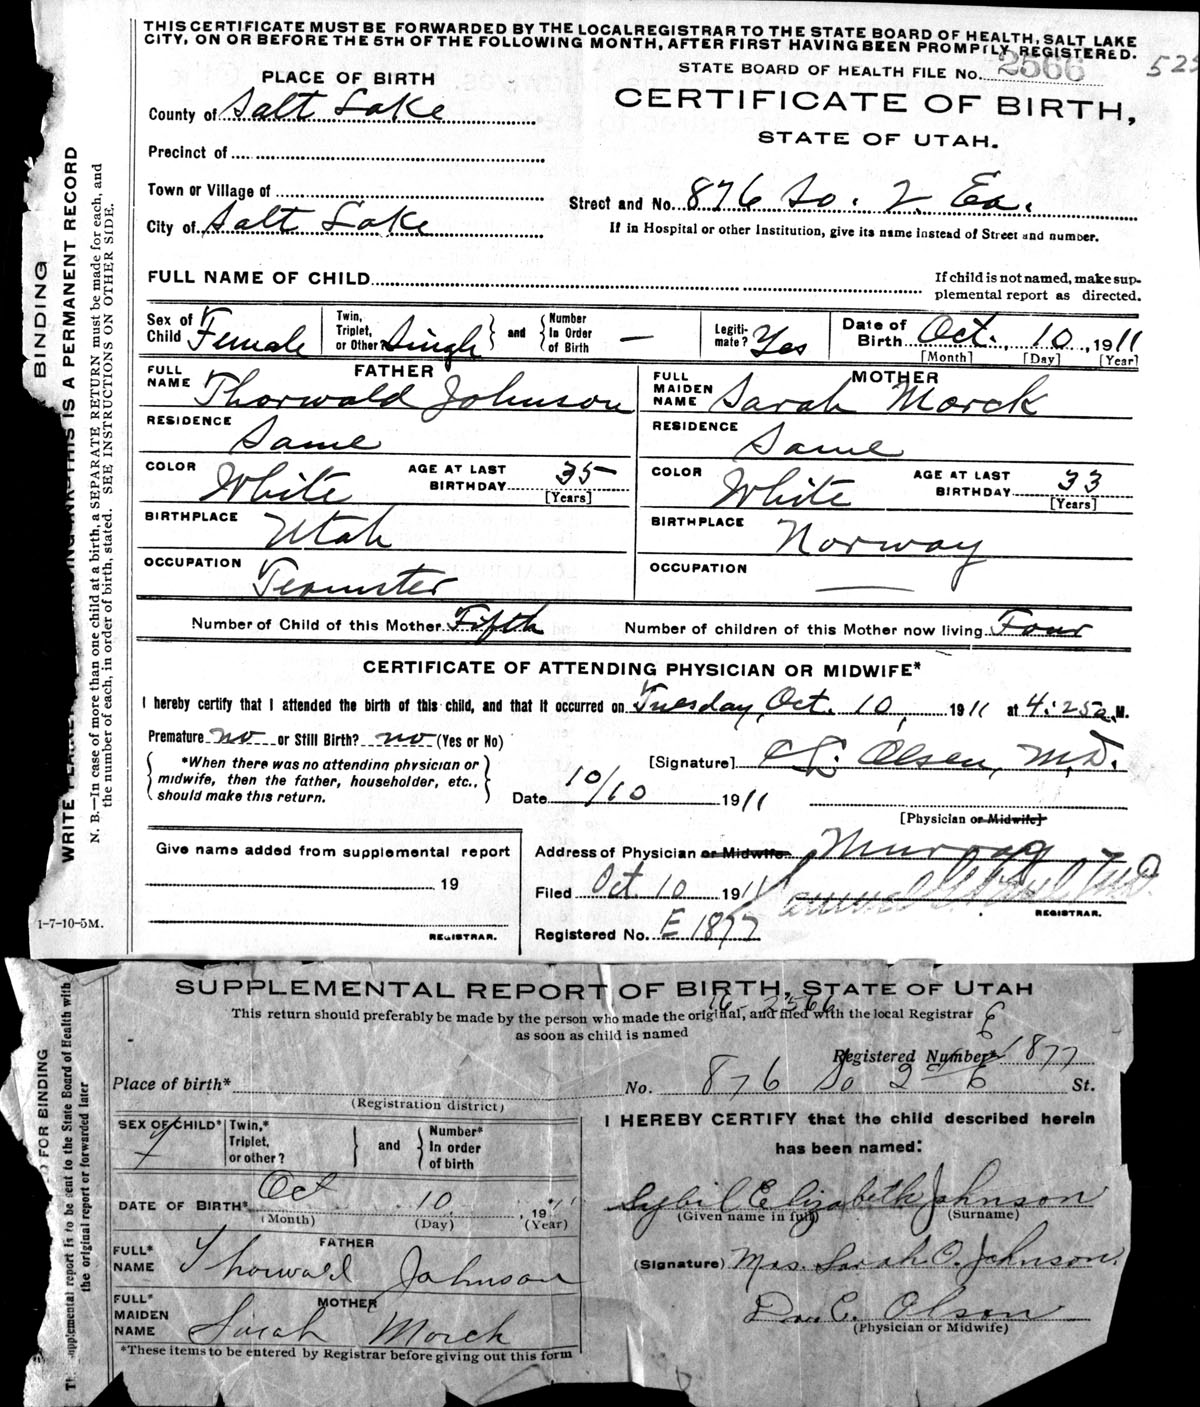 THIS CERTIFICATE MUST BE FORWARDED BY THE LOCAL REGISTRAR TO THE STATE BOARD OF HEALTH, SALT LAKE
CITY, ON OR BEFORE THE 5TH OF THE FOLLOWING MONTH, AFTER FIRST HAVING BEEN PROMPTLY REGISTERED.
STATE BOARD OF HEALTH FILE No. 2566
PLACE OF BIRTH
CERTIFICATE OF BIRTH,
STATE OF UTAH.
County of Salt Lake
Precinct of
Town or Village of
Street and No. 876 So. 2 Ea.
City of Salt Lake
If in Hospital or other Institution, give its name instead of Street and number.
FULL NAME OF CHILD
If child is not named, make sup-
plemental report as directed.
Sex of Child Female
Twin, Triplet, or Other? Single and Number In Order of Birth —
Legiti-mate? Yes
Date of Birth Oct. 10, 1911
[Month] [Day] [Year]
FATHER
FULL NAME Thorwald Johnson
MOTHER
FULL MAIDEN NAME Sarah Morck
RESIDENCE Same
RESIDENCE Same
COLOR White AGE AT LAST BIRTHDAY 35 [Years]
COLOR White AGE AT LAST BIRTHDAY 33 [Years]
BIRTHPLACE Utah
BIRTHPLACE Norway
OCCUPATION Teamster
OCCUPATION —
Number of Child of this Mother Fifth Number of children of this Mother now living Four
CERTIFICATE OF ATTENDING PHYSICIAN OR MIDWIFE*
I hereby certify that I attended the birth of this child, and that it occurred on Tuesday, Oct. 10, 1911 at 4:25 a. M.
Premature no or Still Birth? no (Yes or No)
*When there was no attending physician or
midwife, then the father, householder, etc.,
should make this return.
[Signature] Olsen, M.D.
Date 10/10 1911
[Physician or Midwife]
Give name added from supplemental report
19
REGISTRAR.
Address of Physician or Midwife Murray
Filed Oct. 10 1911
REGISTRAR.
Registered No. E 1877
1-7-10-5M.
BINDING
THIS IS A PERMANENT RECORD
N. B.—In case of more than one child at a birth, a SEPARATE RETURN must be made for each, and
the number of each, in order of birth, stated. SEE INSTRUCTIONS ON OTHER SIDE.
SUPPLEMENTAL REPORT OF BIRTH, STATE OF UTAH
16-2566
This return should preferably be made by the person who made the original, and filed with the local Registrar
as soon as child is named
Registered Number* E 1877
Place of birth* No. 876 So 2nd E St.
(Registration district)
SEX OF CHILD* F
Twin,* Triplet, or other? and Number* In order of birth
DATE OF BIRTH* Oct 10, 1911
(Month) (Day) (Year)
FATHER
FULL* NAME Thorwald Johnson
MOTHER
FULL* MAIDEN NAME Sarah Morck
*These items to be entered by Registrar before giving out this form
I HEREBY CERTIFY that the child described herein
has been named:
Sybil Elizabeth Johnson
(Given name in full) (Surname)
(Signature) Mrs. Sarah O. Johnson.
Dr. C. Olson
(Physician or Midwife)
FOR BINDING
supplemental report is to be sent to the State Board of Health with
the original report or forwarded later